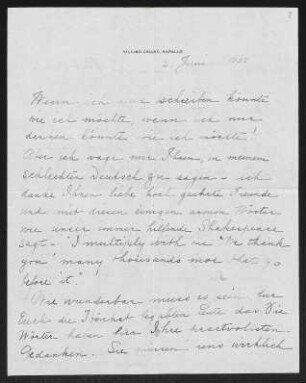 VILLINO CHIARO, RAPALLO
2. Juni
Wenn ich nur schreiben könnte
wie ich möchte, wenn ich nur
danken könnte wie ich möchte!
Aber ich wage nur Ihnen, in meinem
schlechten Deutsch zu sagen – ich
danke Ihnen liebe hoch geehrte Freunde
und mit diesen einzigen armen Wörter
wie unser immer helfende Shakespeare
sagt – "I multiply with one 'We thank
you' many thousands moe that go
before it."
Wie wunderbar muss es sein für
Euch die höchst begabten Leute das die
Wörter haben für Ihre prachtvollsten
Gedanken. Sie uns wirklich